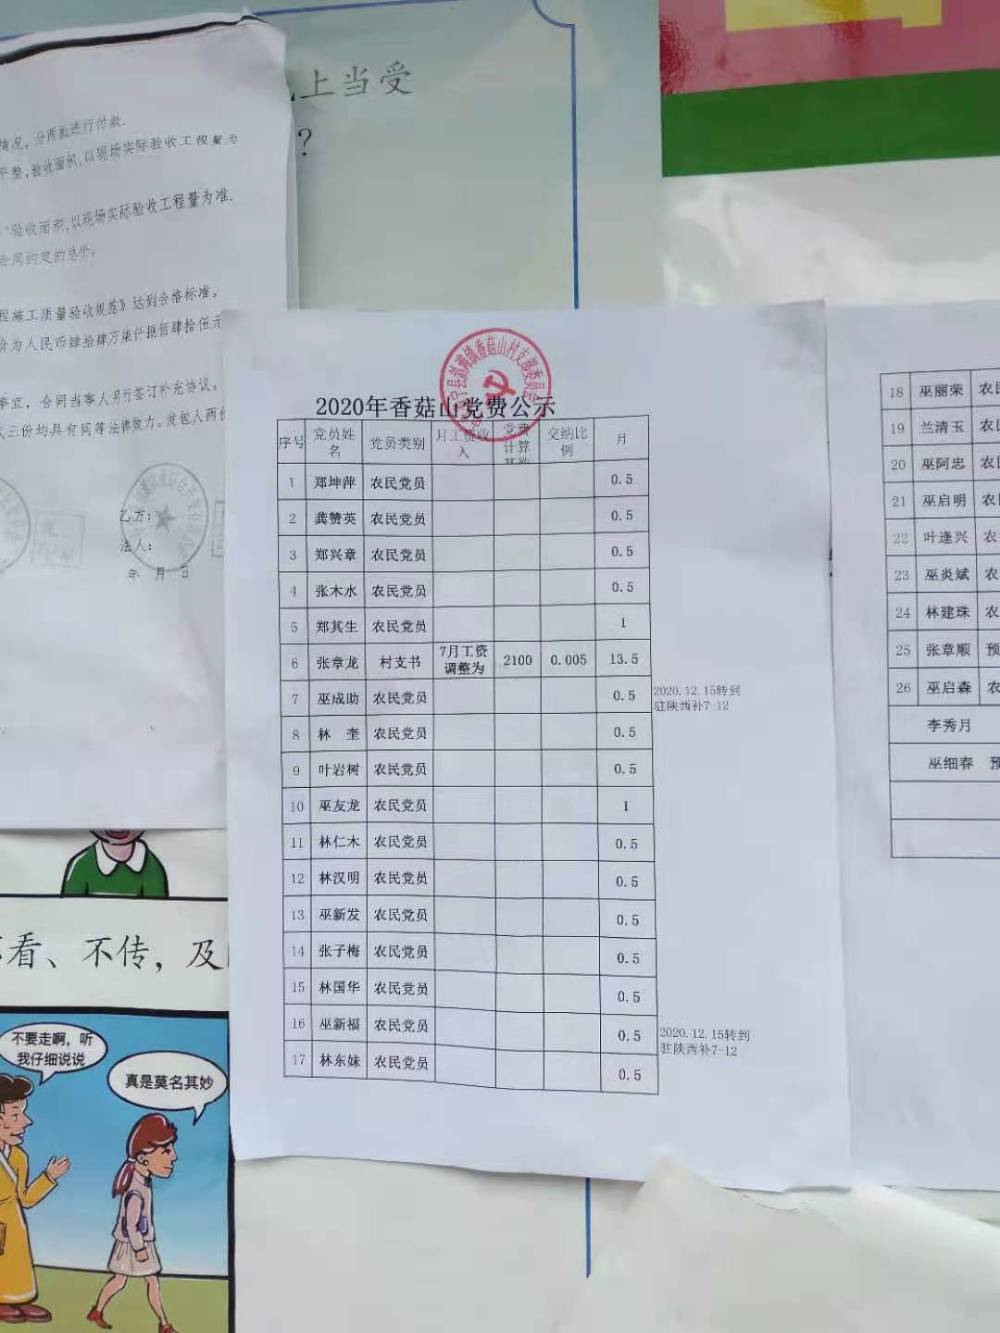 上当受
?
情况，分两批进行付款.
平整,验收面积,以现场实际验收工程量为
验收面积,以现场实际验收工程量为准.
合同约定的总价。
程施工质量验收规范》达到合格标准。
价为人民币肆拾肆万柒仟捌佰肆拾伍元
事宜，合同当事人另行签订补充协议。
式三份均具有同等法律效力。发包人两份
乙方：
法人：
年 月 日
香菇山村支部委员会
2020年香菇山党费公示
序号 党员姓名 党员类别 月工资收入 党费计算基数 交纳比例 月
1 郑坤萍 农民党员 0.5
2 龚赞英 农民党员 0.5
3 郑兴章 农民党员 0.5
4 张木水 农民党员 0.5
5 郑其生 农民党员 1
6 张章龙 村支书 7月工资调整为 2100 0.005 13.5
7 巫成助 农民党员 0.5
2020.12.15转到
驻陕西补7-12
8 林 奎 农民党员 0.5
9 叶岩树 农民党员 0.5
10 巫友龙 农民党员 1
11 林仁木 农民党员 0.5
12 林汉明 农民党员 0.5
13 巫新发 农民党员 0.5
14 张子梅 农民党员 0.5
15 林国华 农民党员 0.5
16 巫新福 农民党员 0.5
2020.12.15转到
驻陕西补7-12
17 林东妹 农民党员 0.5
18 巫丽荣 农民
19 兰清玉 农民
20 巫阿忠 农民
21 巫启明 农民
22 叶逢兴 农
23 巫炎斌 农
24 林建珠 农
25 张章顺 预
26 巫启森 农
李秀月
巫细春 预
看、不传，及
不要走啊，听
我仔细说说
真是莫名其妙